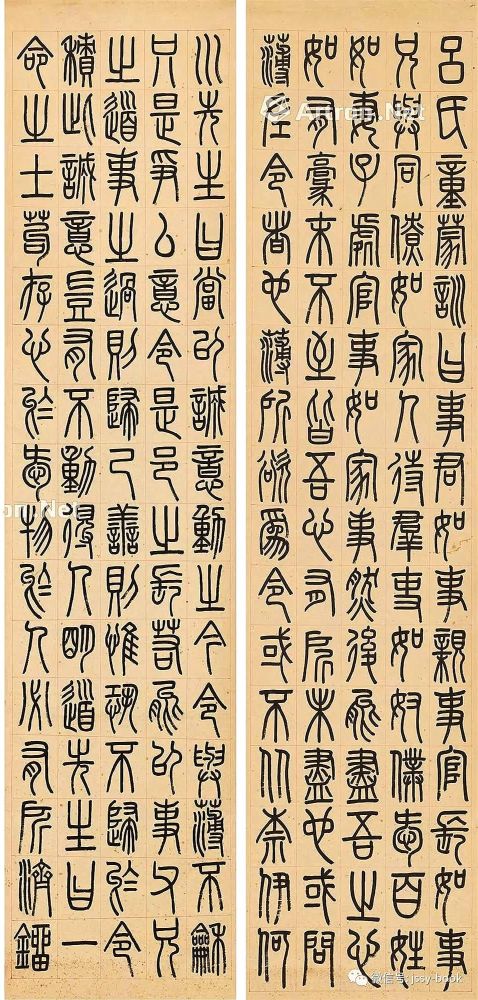 呂氏童蒙訓曰事君如事親事官長如事
兄與同僚如家人待羣吏如奴僕愛百姓
如妻子處官事如家事然後能盡吾之心
如有豪末不至皆吾心有所未盡也或問
薄佐令者也薄所欲爲令或不从奈伊何
川先生曰當以誠意動之今令與薄不龢
只是爭厶意令是邑之長若能以事父兄
之道事之過則歸己善則惟恐不歸於令
積此誠意豈有不動得人明道先生曰一
命之士苟存心於愛物於人必有所濟
Artron.Net
微信号: jssy-book